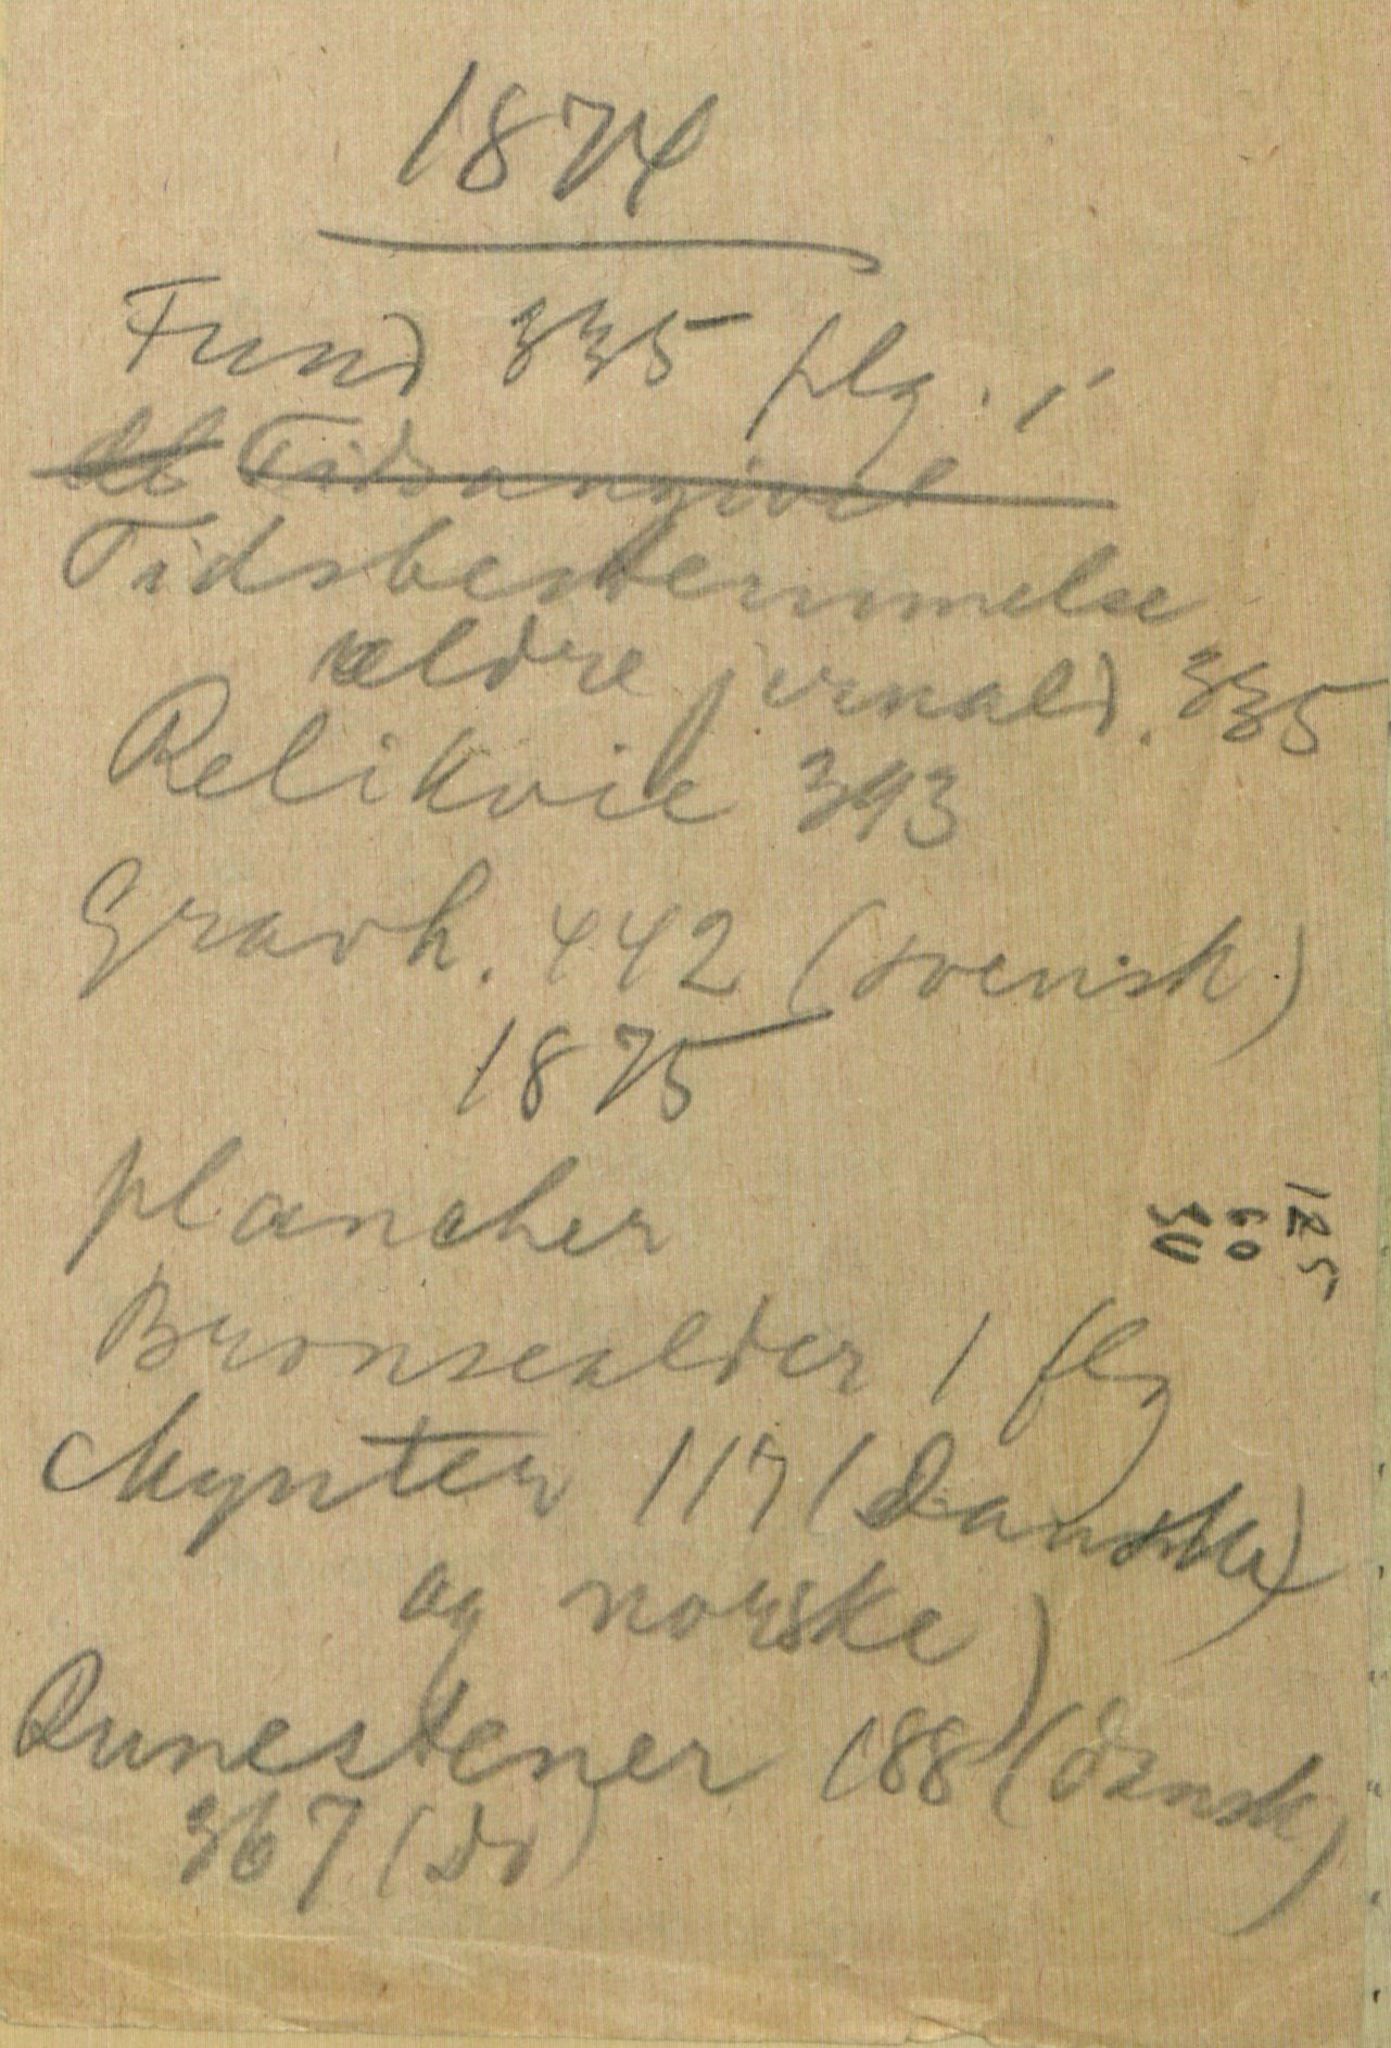 1874
Fund 335 flg. i
Tidsangivel
Tidsbestemmelse
ældre jernald. 335
Relikvie 393
Gravh. 442 (svensk)
1875
plancher
Bronsealder 1 flg
Mynter 117 (Danske)
og norske)
Runestener 188 (dansk)
367 (do)
125
60